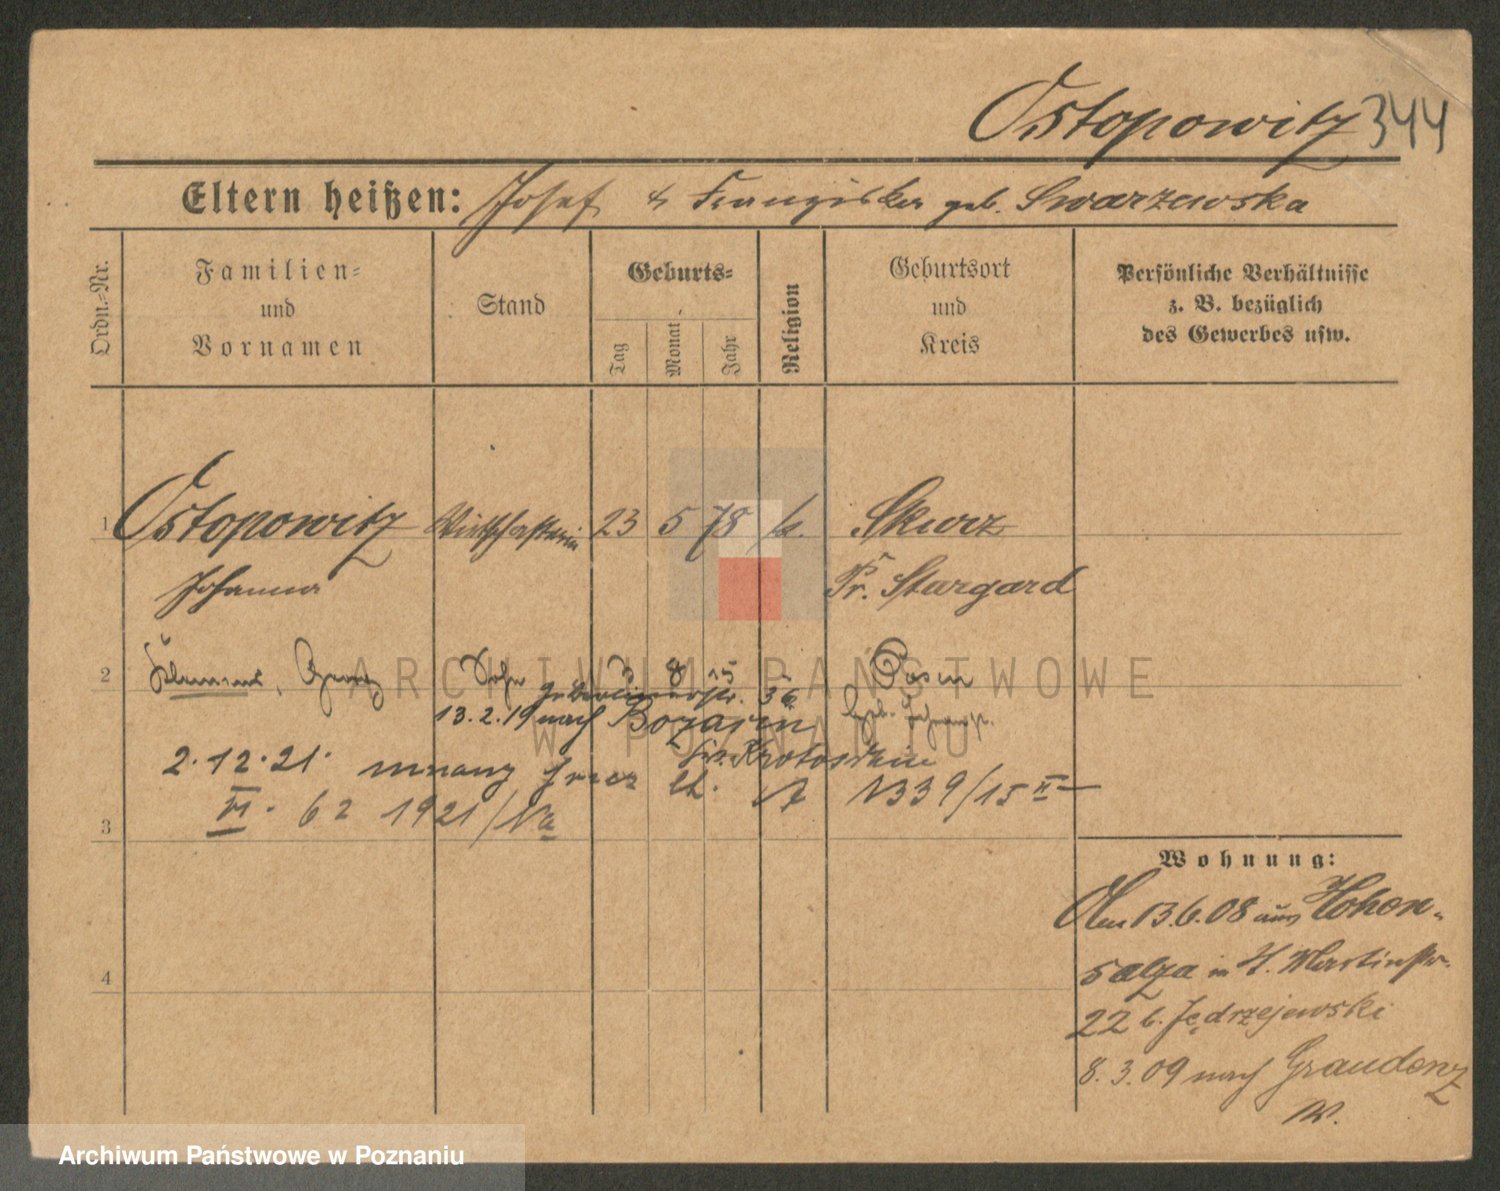 Ostopowitz 344
Eltern heißen: Josef & Franziska geb. Swarzewska
Ordn.-Nr.
Familien- und Vornamen
Stand
Geburts-
Tag
Monat
Jahr
Religion
Geburtsort und Kreis
Persönliche Verhältnisse
z. B. bezüglich
des Gewerbes usw.
1 Ostopowitz Wirtschafterin 23 5 78 k. Skurz
Johanna Pr. Stargard
2 Georg Sohn 3 8 15 Posen
Berlinerstr. 36
13.2.19 nach Bozacin
Kr. Krotoschin
2.12.21. nieznany przez A 1339/15 II
VI. 62 1921/
3
Wohnung:
Am 13.6.08 aus Hohen-
salza in St. Martinstr.
22 b. Jędrzejewski
4
8.3.09 nach Graudenz
W.
ARCHIWUM PAŃSTWOWE
W POZNANIU
Archiwum Państwowe w Poznaniu